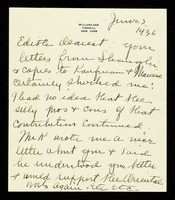 WILLOWLAND
TIVERTON
NEW YORK
June 3
1936
Edith dearest your
letters from Shanghai
& copies to Kaufman &
certainly shocked me.
I had no idea that the
silly pros & cons of that
contribution continued
Mr K wrote me a nice
letter about you & said
he understood you better
& would support the Oriental
work again. etc etc.